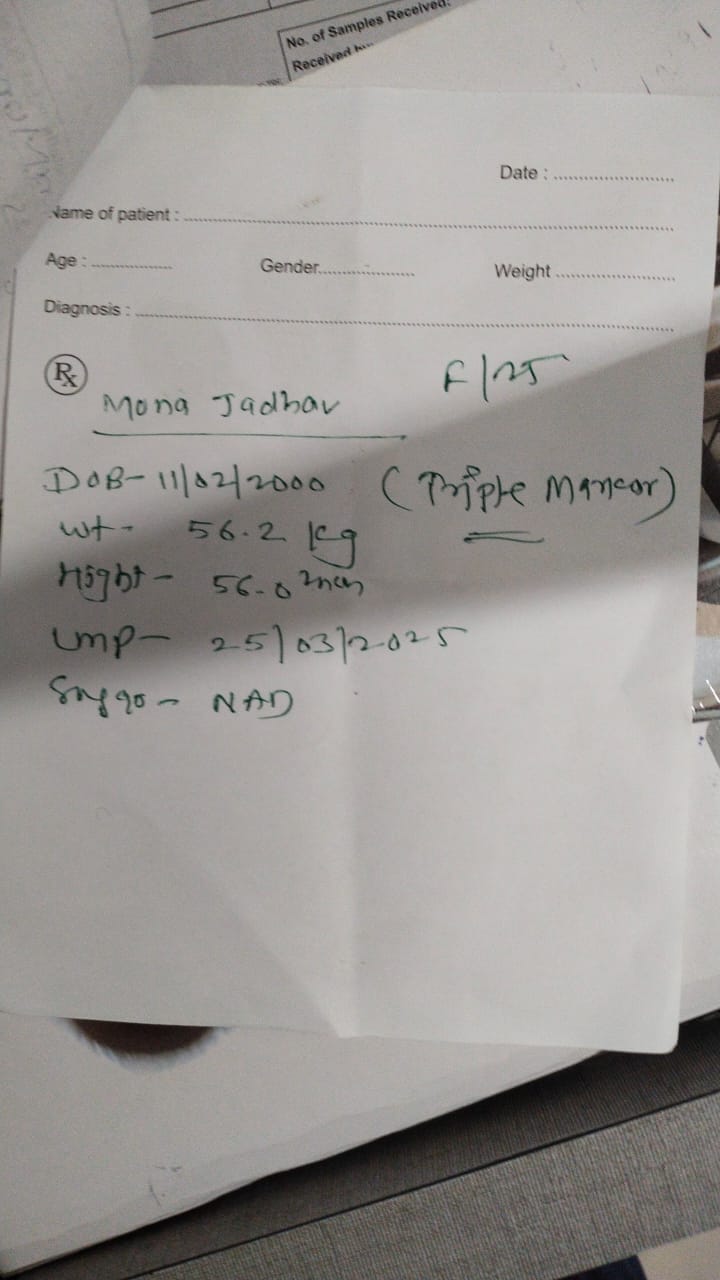 No. of Samples Received:
Received by
Date :
Name of patient :
Age : Gender Weight
Diagnosis :
Rx
Mona Jadhav F/25
DOB- 11/02/2000 (Triple Marker)
wt- 56.2 kg
Hight- 56.0 inch
LMP- 25/03/2025
NAD